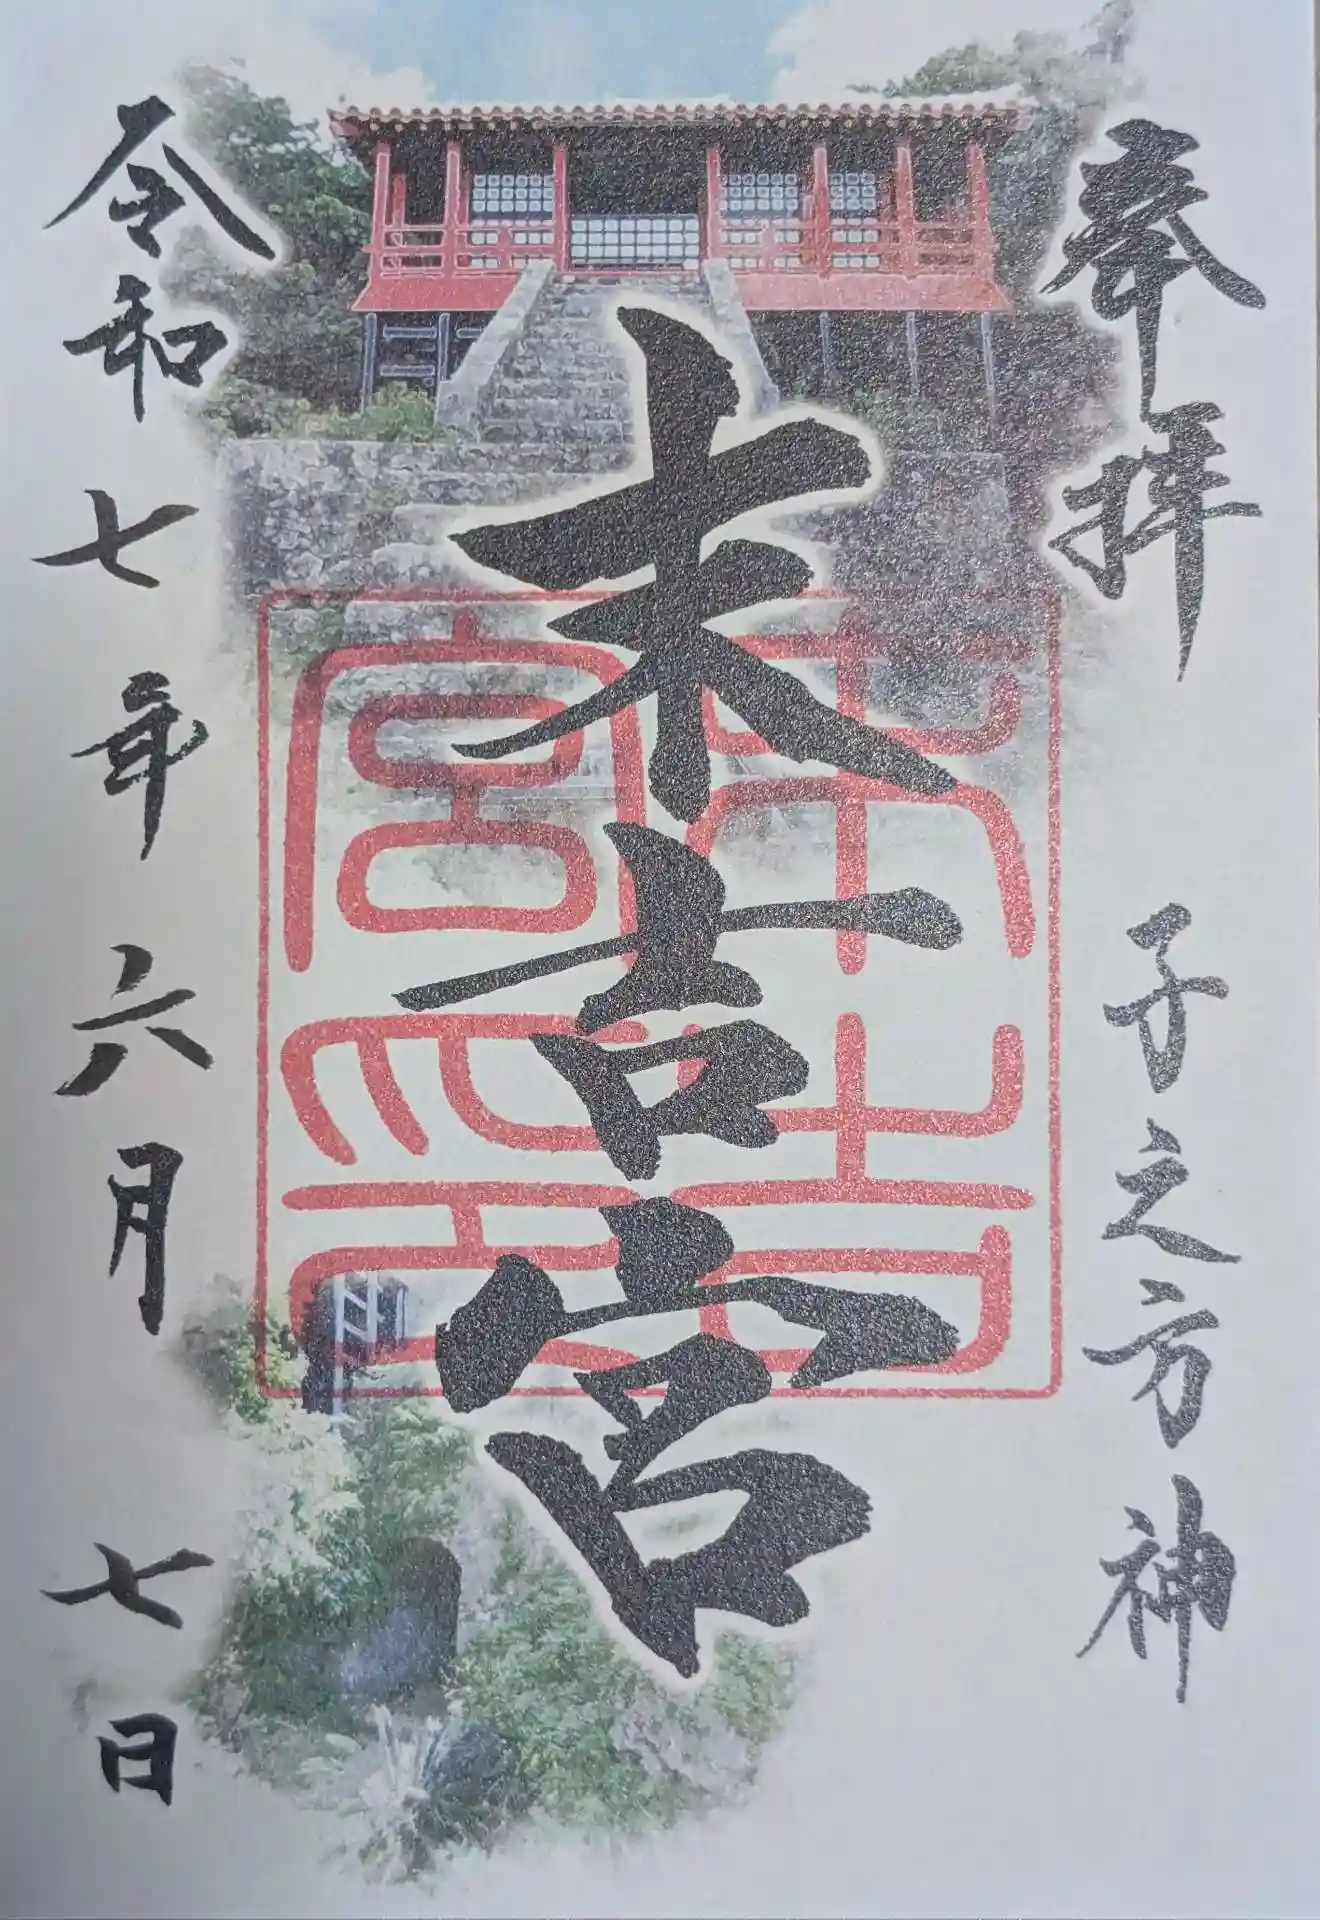 奉拝 子之方神
末吉宮
令和七年六月七日
末吉宮印